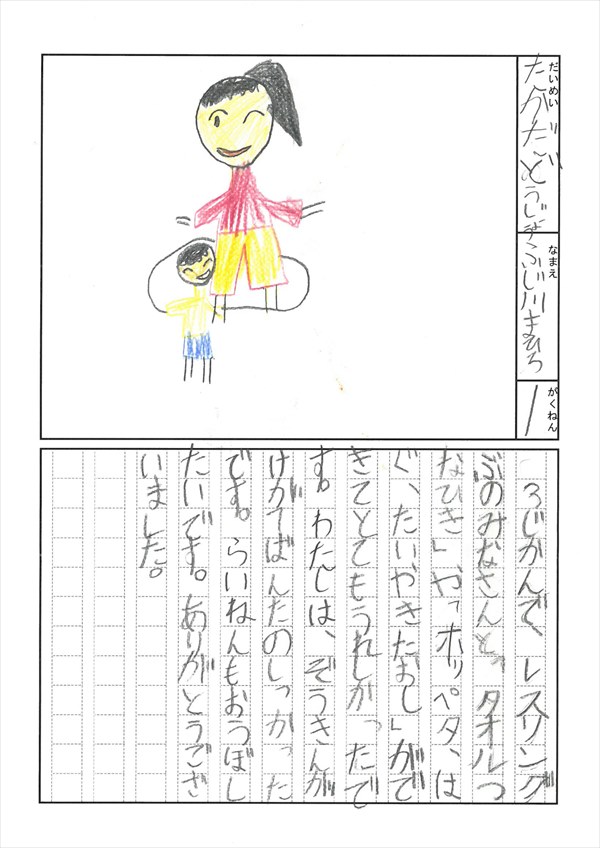 だいめい
とうじょう
なまえ
ふじ川まひろ
がくねん
1
3じかんで、レスリング
ぶのみなさんと。タオルつ
なひき」や「ホッペタ、は
ぐ、たいやきたおし」がで
きてとてもうれしかったで
す。わたしは、ぞうきんが
けが ばんたのしっかった
です。らいねんもおうぼし
たいです。ありがとうござ
いました。